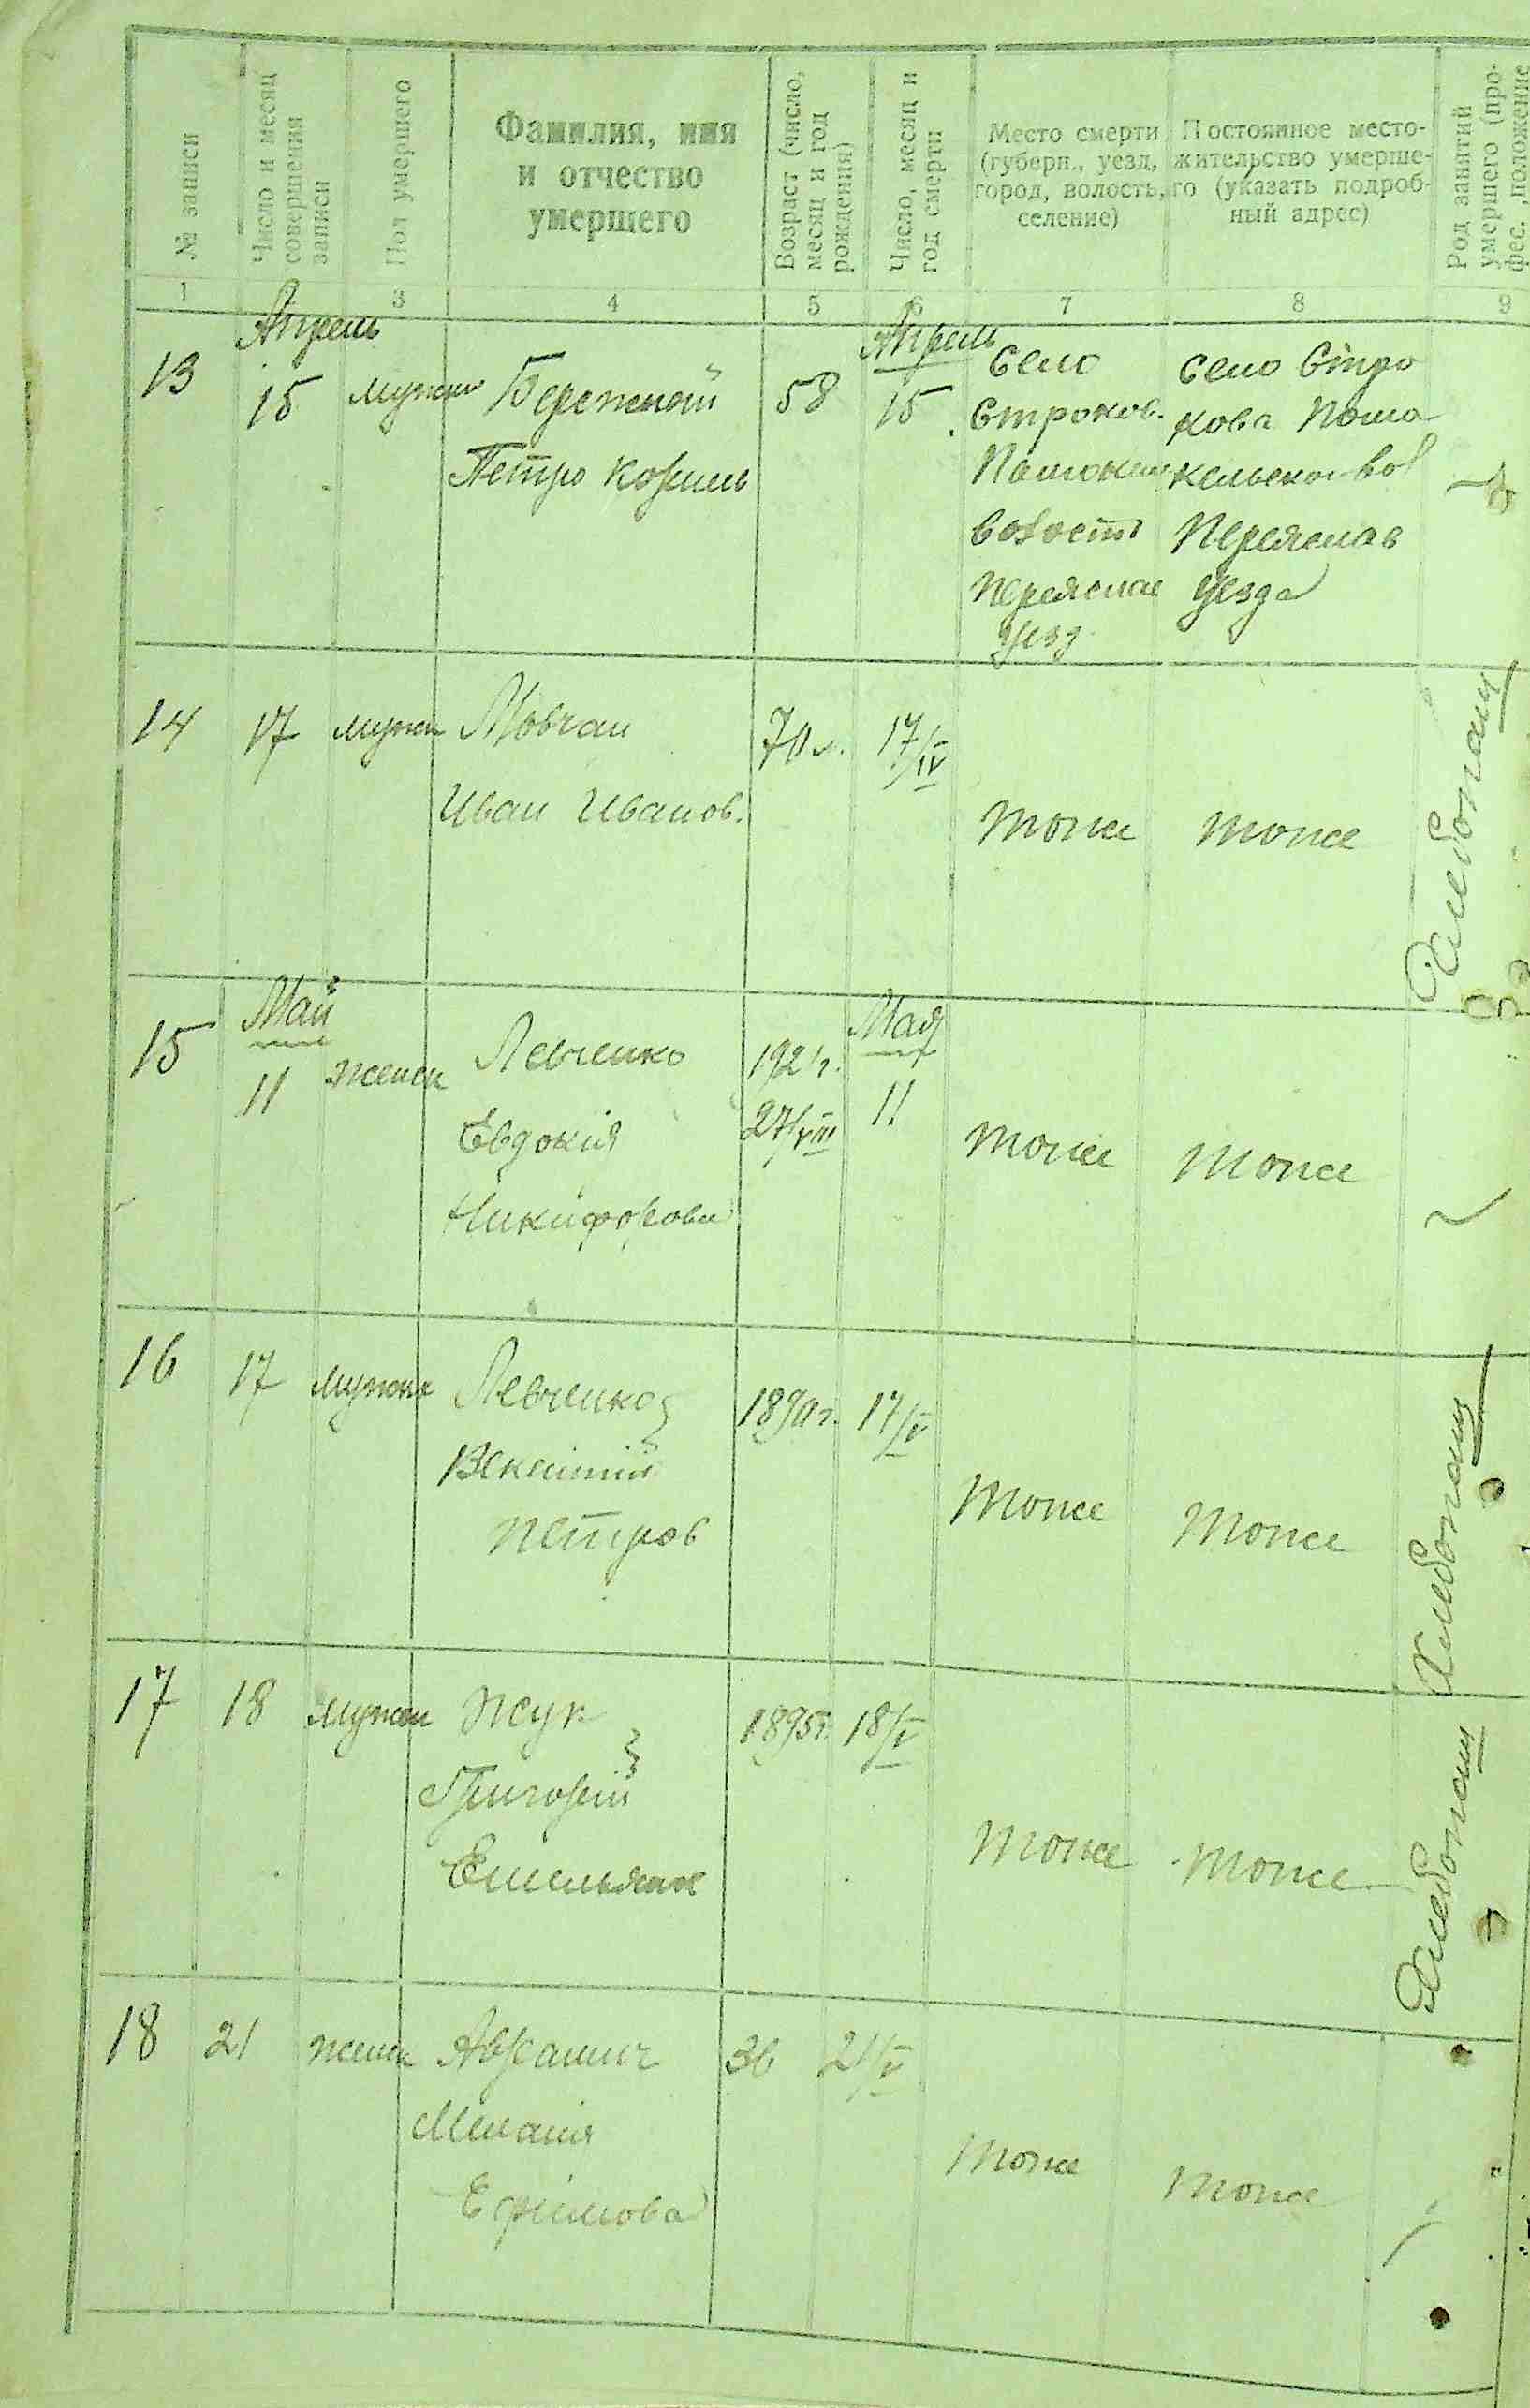 № записи
Число и месяц
совершения
записи
Пол умершего
Фамилия, имя
и отчество
умершего
Возраст (число,
месяц и год
рождения)
Число, месяц и
год смерти
Место смерти
(губерн., уезд,
город, волость,
селение)
Постоянное место-
жительство умерше-
го (указать подроб-
ный адрес)
Род занятий
умершего (про-
фес., положение
1
3
4
5
6
7
8
9
13
Апрель
15
мужск
Бережной
Петро Корнил
58
Апрель
15
Село
Строков.
волости
Переяслав
уезд.
Село Стро
кова Пома
кельской вол
Переяслав
уезда
14
17
мужск
Мовчан
Иван Иванов.
70 л.
17/IV
тоже
тоже
Хлебопаш
15
Май
11
женск
Левченко
Евдокія
Никифорова
192 г.
27/VIII
Мая
11
тоже
тоже
16
17
мужск
Левченко
Петров
1890 г.
17/V
тоже
тоже
Хлебопаш
17
18
мужск
Жук
Григорій
Емельянов
1895 г.
18/V
тоже
тоже
Хлебопаш
18
21
женск
Мелания
Ефимова
36
21/V
тоже
тоже